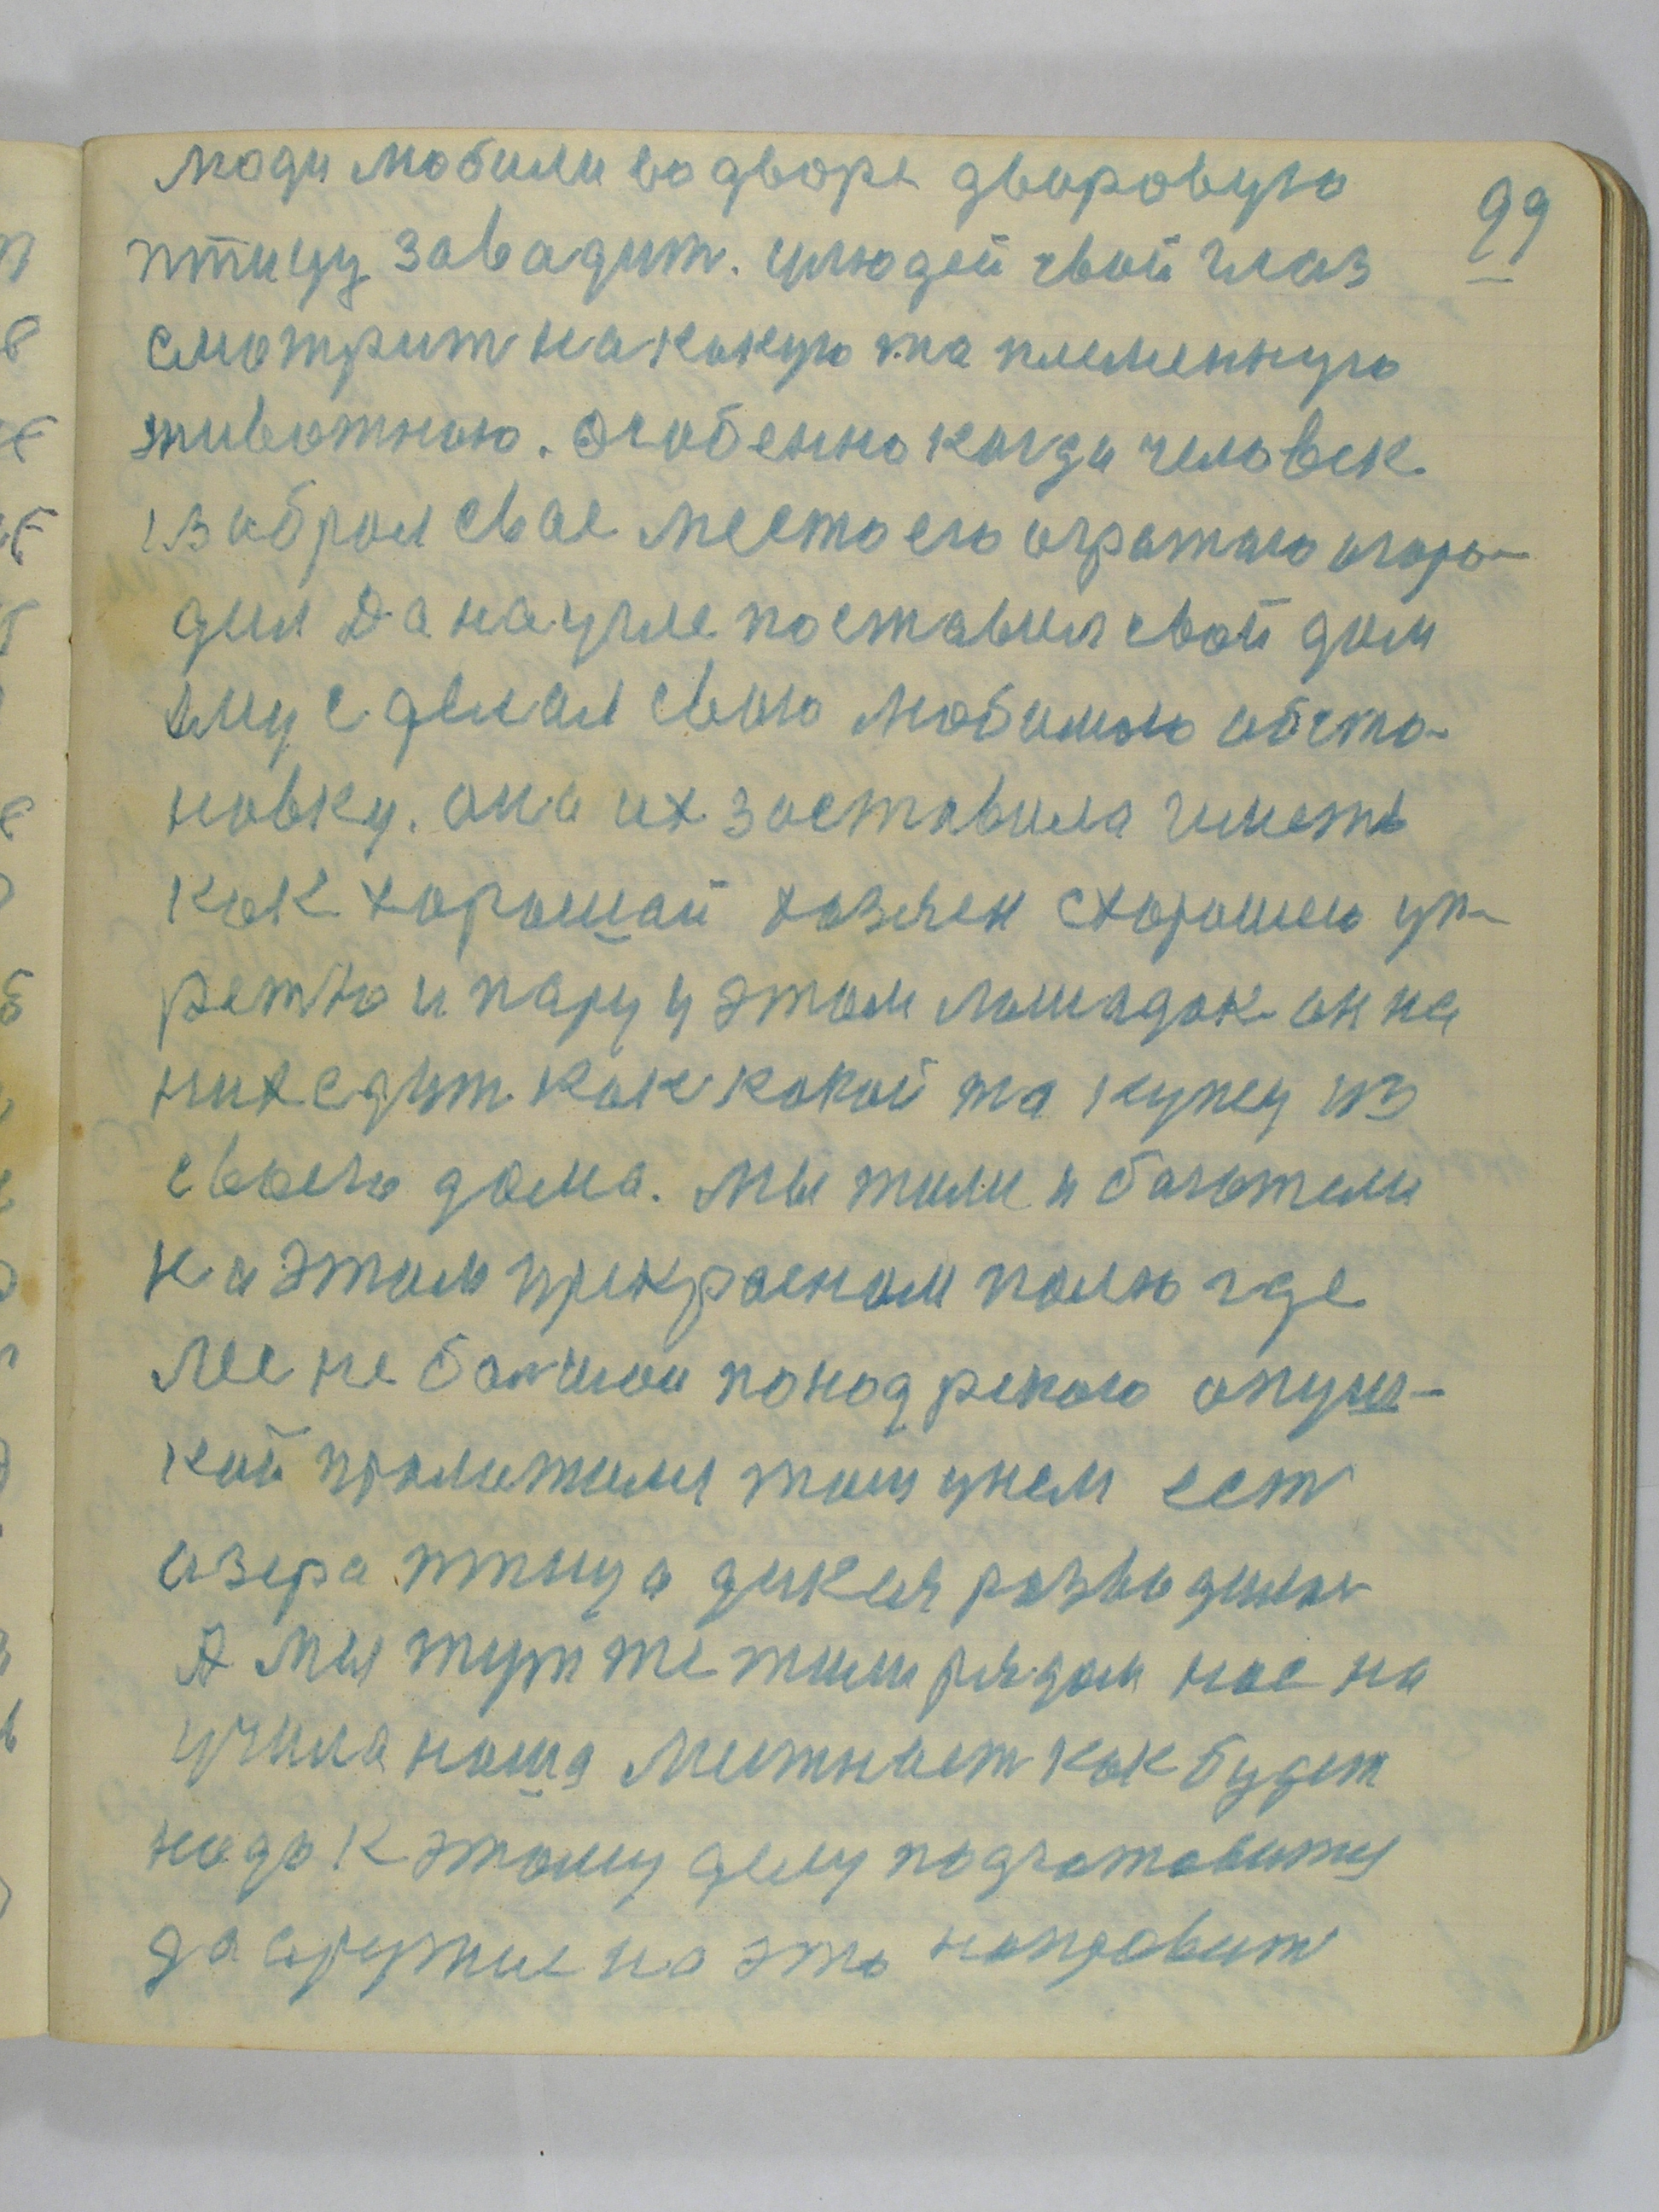 люди любили во дворе дваровую
99
птицу завадит. улюдей свой глаз
смотрит на какую та племенную
животною. Особенно когда человек
изабрал свае место его ограт​ою огоро-
дил Да на угле поставил свой дом
ему сделал свою любимою обста-
новку. она их заставила иметь
как хорошай хазяен схорошею уп-
режю и пару у этом лошадок он на
них едит как какой та купец из
своего дома. мы жили и богатели
на этом прекрасном полю где
лес не большой понад рекою опуш-
кой проложился там унем ест
озера птица дикая разводилас
А мы тут же жили рядом нас на
учила наша местност как будет
надо к этому делу подготовится
да оружие на это направит